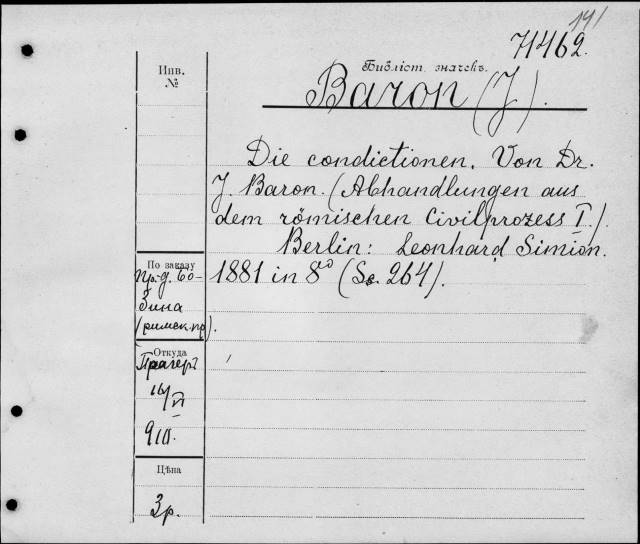 141
71462.
Инв.
№
Библіот. значекъ.
Baron (J).
Die condictionen. Von Dr.
J. Baron. (Abhandlungen aus
dem römischen Civilprozess I.).
Berlin: Leonhard Simion.
1881 in 8° (Ss. 264).
По заказу
пр-д. Бо-
зина
(римск. пр).
Откуда
Прагеръ
16/VI
910.
Цѣна
3р.